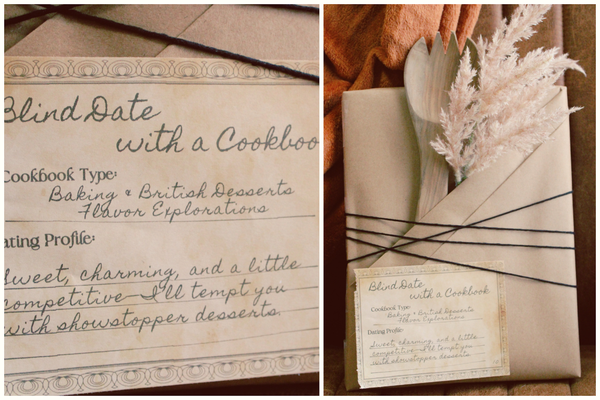 Blind Date
with a Cookboo
Cookbook Type:
Baking & British Desserts
Flavor Explorations
ating Profile:
Sweet, charming, and a little
competitive—I'll tempt you
with showstopper desserts.
Blind Date
with a Cookbook
Cookbook Type:
Baking & British Desserts
Flavor Explorations
Dating Profile:
Sweet, charming, and a little
competitive—I'll tempt you
with showstopper desserts.